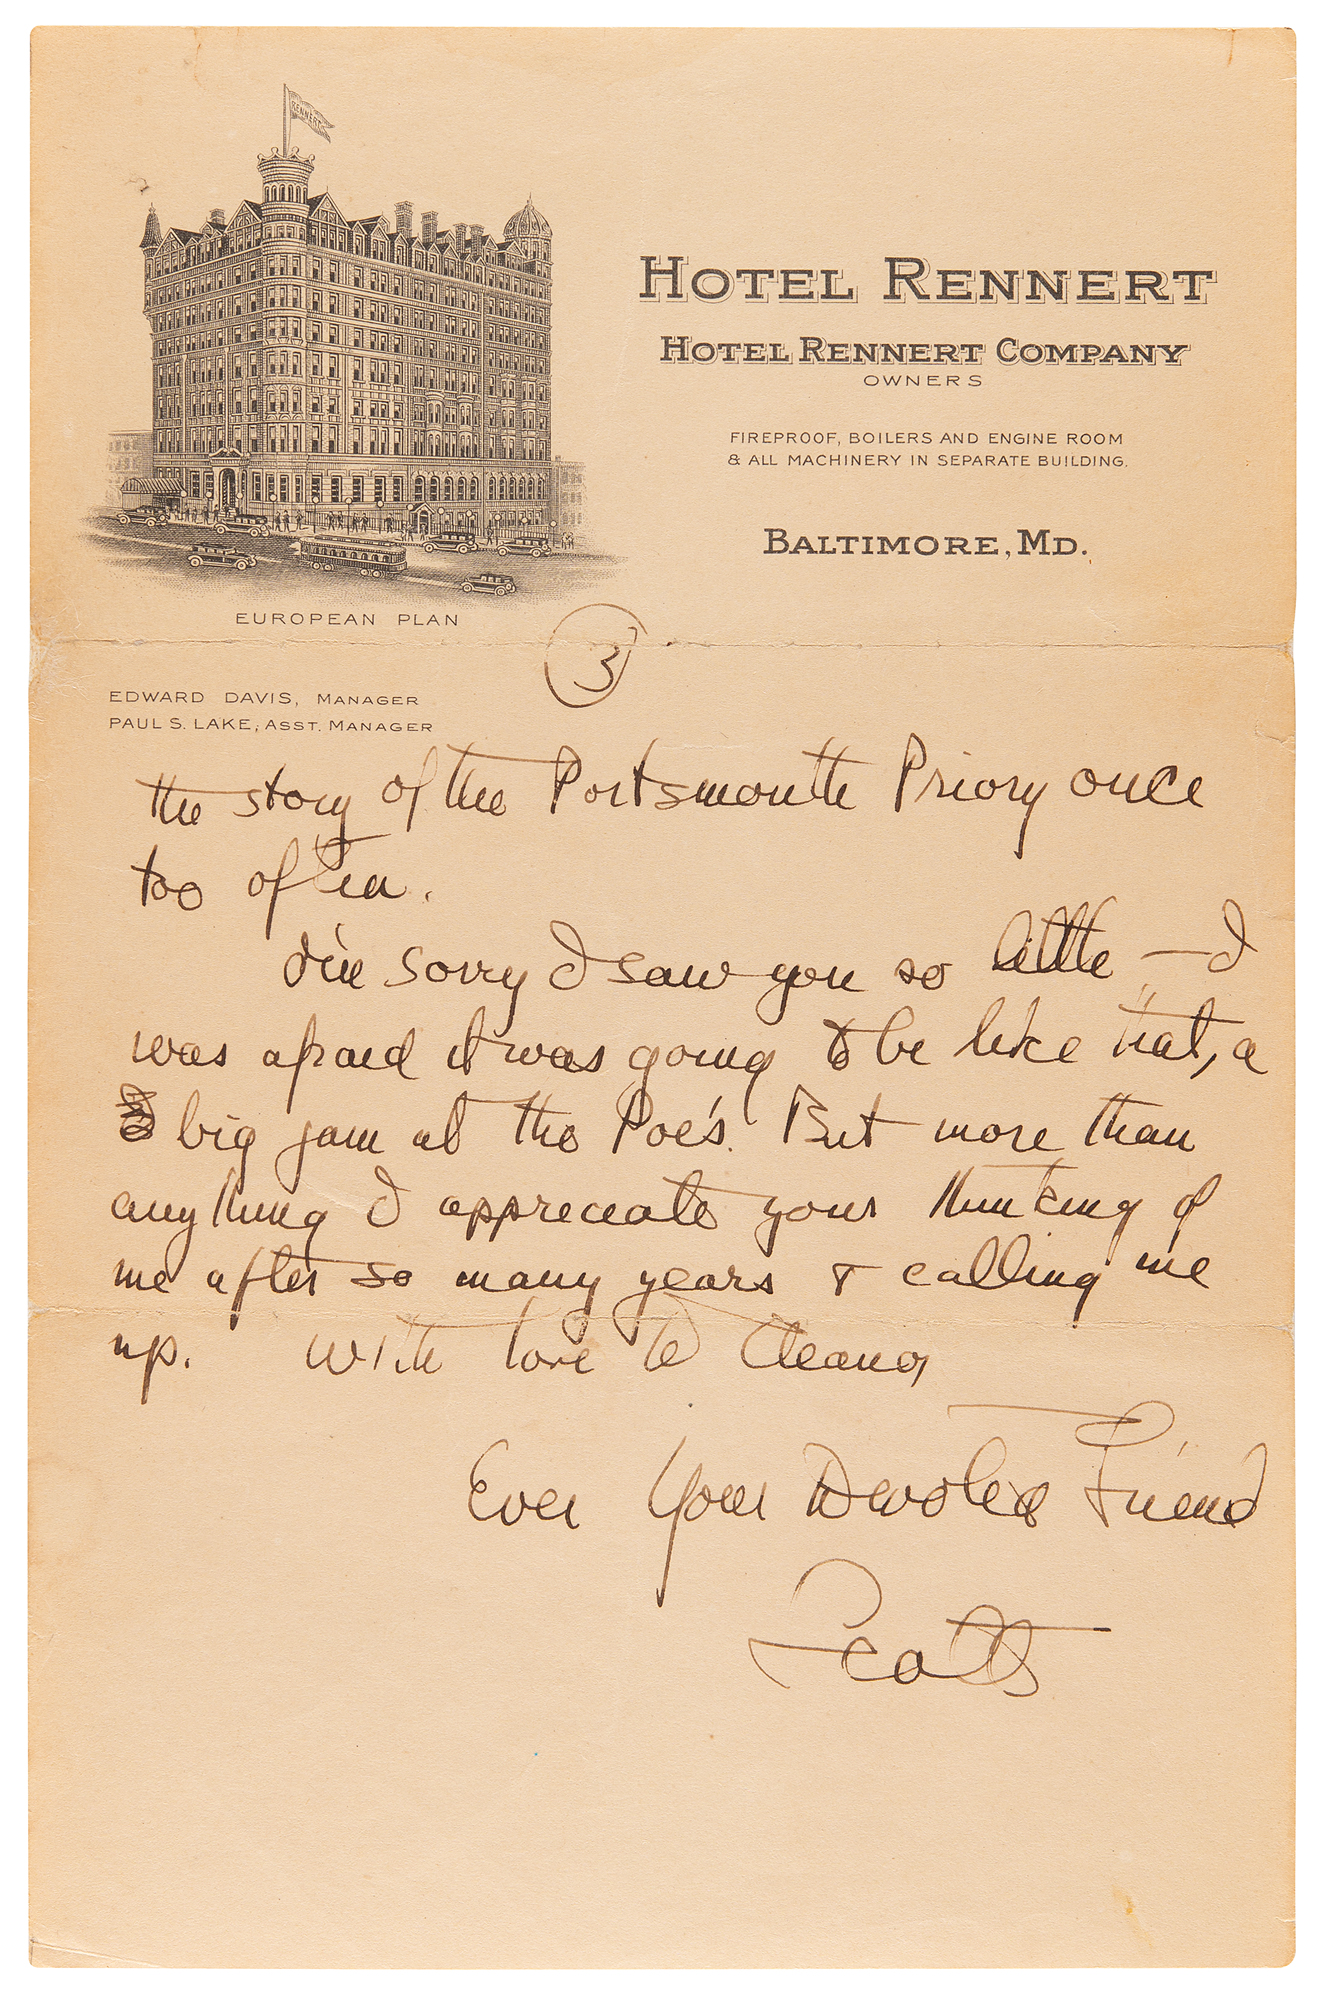 RENNERT
HOTEL RENNERT
HOTEL RENNERT COMPANY
OWNERS
FIREPROOF, BOILERS AND ENGINE ROOM
& ALL MACHINERY IN SEPARATE BUILDING.
BALTIMORE, MD.
EUROPEAN PLAN
3
EDWARD DAVIS, MANAGER
PAUL S. LAKE, ASST. MANAGER
the story of the Portsmouth Priory once
too often.
I'm sorry I saw you so little — I
was afraid it was going to be like that, a
big jam at the Poe's. But more than
anything I appreciate your thinking of
me after so many years & calling me
up. With love to Eleanor
Ever Your Devoted Friend
Scott